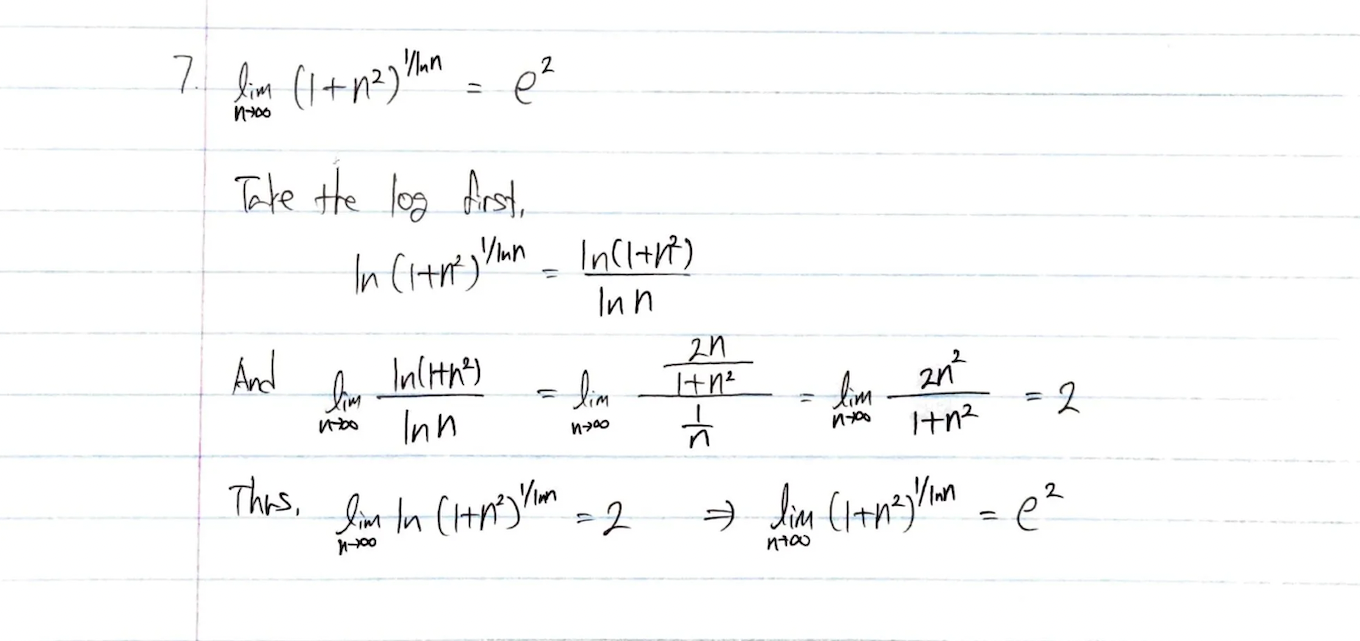 7. lim_{n→∞} (1+n²)^{1/ln n} = e²
Take the log first,
ln (1+n²)^{1/ln n} = ln(1+n²) / ln n
And lim_{n→∞} ln(1+n²) / ln n = lim_{n→∞} (2n / (1+n²)) / (1/n) = lim_{n→∞} 2n² / (1+n²) = 2
Thus, lim_{n→∞} ln (1+n²)^{1/ln n} = 2 ⇒ lim_{n→∞} (1+n²)^{1/ln n} = e²